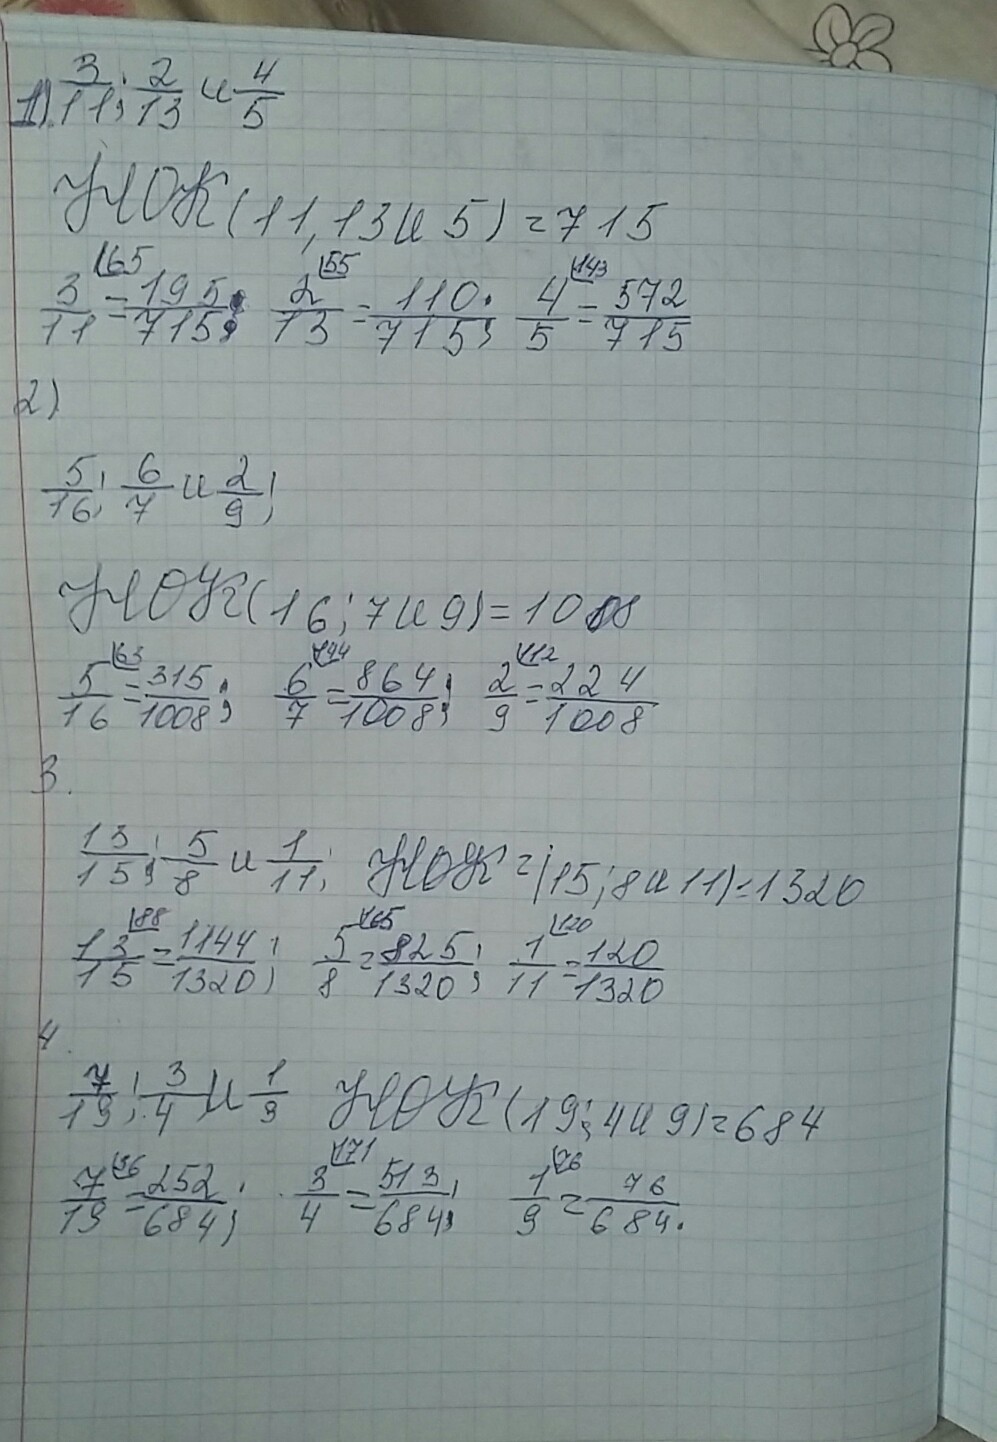 1) 3/11; 2/13 и 4/5
НОК(11,13 и 5)=715
3/11 |65 = 195/715; 2/13 |55 = 110/715; 4/5 |143 = 572/715
2)
5/16; 6/7 и 2/9;
НОК(16; 7 и 9)=1008
5/16 |63 = 315/1008; 6/7 |144 = 864/1008; 2/9 |112 = 224/1008
3.
13/15; 5/8 и 1/11; НОК=(15; 8 и 11)=1320
13/15 |88 = 1144/1320; 5/8 |165 = 825/1320; 1/11 |120 = 120/1320
4.
7/19; 3/4 и 1/9 НОК(19; 4 и 9)=684
7/19 |36 = 252/684; 3/4 |171 = 513/684; 1/9 |76 = 76/684.